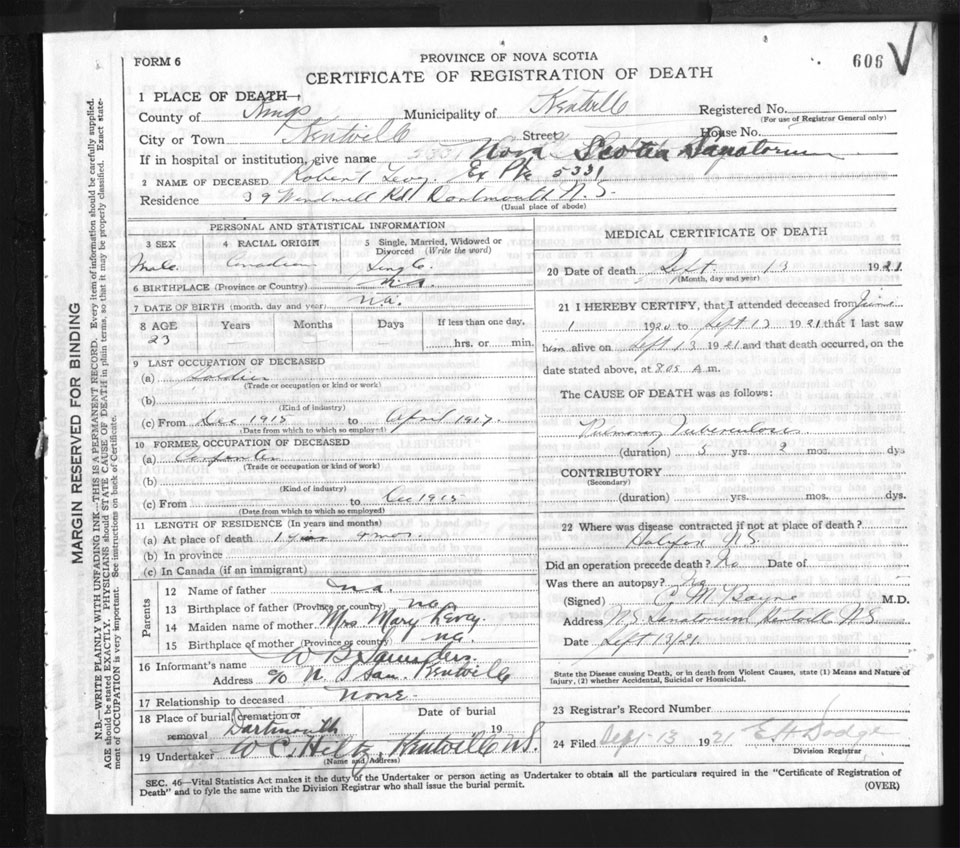 FORM 6
PROVINCE OF NOVA SCOTIA
606
CERTIFICATE OF REGISTRATION OF DEATH
1 PLACE OF DEATH—
County of Kings Municipality of Kentville Registered No.
(For use of Registrar General only)
City or Town Kentville Street House No.
If in hospital or institution, give name 2331 Nova Scotia Sanatorium
2 NAME OF DECEASED Robert Levy. Ex Pte 5331
Residence 39 Windmill Rd Dartmouth N.S
(Usual place of abode)
PERSONAL AND STATISTICAL INFORMATION
3 SEX 4 RACIAL ORIGIN 5 Single, Married, Widowed or Divorced (Write the word)
Male Canadian Single
6 BIRTHPLACE (Province or Country) n.a.
7 DATE OF BIRTH (month, day and year) n.a.
8 AGE Years Months Days If less than one day,
23 hrs. or min.
9 LAST OCCUPATION OF DECEASED
(a) Soldier
(Trade or occupation or kind of work)
(b)
(Kind of industry)
(c) From Dec 1915 to April 1917.
(Date from which to which so employed)
10 FORMER OCCUPATION OF DECEASED
(a) Carpenter
(Trade or occupation or kind of work)
(b)
(Kind of industry)
(c) From to Dec 1915
(Date from which to which so employed)
11 LENGTH OF RESIDENCE (In years and months)
(a) At place of death 1 mos.
(b) In province
(c) In Canada (if an immigrant)
Parents
12 Name of father n.a.
13 Birthplace of father (Province or country) na.
14 Maiden name of mother Mrs. Mary Levy.
15 Birthplace of mother (Province or country) na.
16 Informant's name W B Saunders.
Address c/o N. S San. Kentville
17 Relationship to deceased None
18 Place of burial, cremation or removal Dartmouth Date of burial 19
19 Undertaker W C Hiltz, Kentville N.S.
(Name and Address)
MEDICAL CERTIFICATE OF DEATH
20 Date of death Sept. 13 1921
(Month, day and year)
21 I HEREBY CERTIFY, that I attended deceased from June
1 1920 to Sept 13 1921 that I last saw
him alive on Sept 13 1921 and that death occurred, on the
date stated above, at 8.05 A.m.
The CAUSE OF DEATH was as follows:
Pulmonary Tuberculosis
(duration) 5 yrs. mos. dys
CONTRIBUTORY
(Secondary)
(duration) yrs. mos. dys.
22 Where was disease contracted if not at place of death?
Halifax N.S.
Did an operation precede death? No Date of
Was there an autopsy? No
(Signed) C M Bayne M.D.
Address N.S. Sanatorium Kentville N.S
Date Sept 13/21.
State the Disease causing Death, or in death from Violent Causes, state (1) Means and Nature of Injury, (2) whether Accidental, Suicidal or Homicidal.
23 Registrar's Record Number
24 Filed Sept-13 1921 E H Dodge
Division Registrar
SEC. 46—Vital Statistics Act makes it the duty of the Undertaker or person acting as Undertaker to obtain all the particulars required in the "Certificate of Registration of
Death" and to fyle the same with the Division Registrar who shall issue the burial permit.
(OVER)
MARGIN RESERVED FOR BINDING
N.B.—WRITE PLAINLY WITH UNFADING INK—THIS IS A PERMANENT RECORD. Every item of information should be carefully supplied.
AGE should be stated EXACTLY. PHYSICIANS should STATE CAUSE OF DEATH in plain terms, so that it may be properly classified. Exact state-
ment of OCCUPATION is very important. See instructions on back of Certificate.